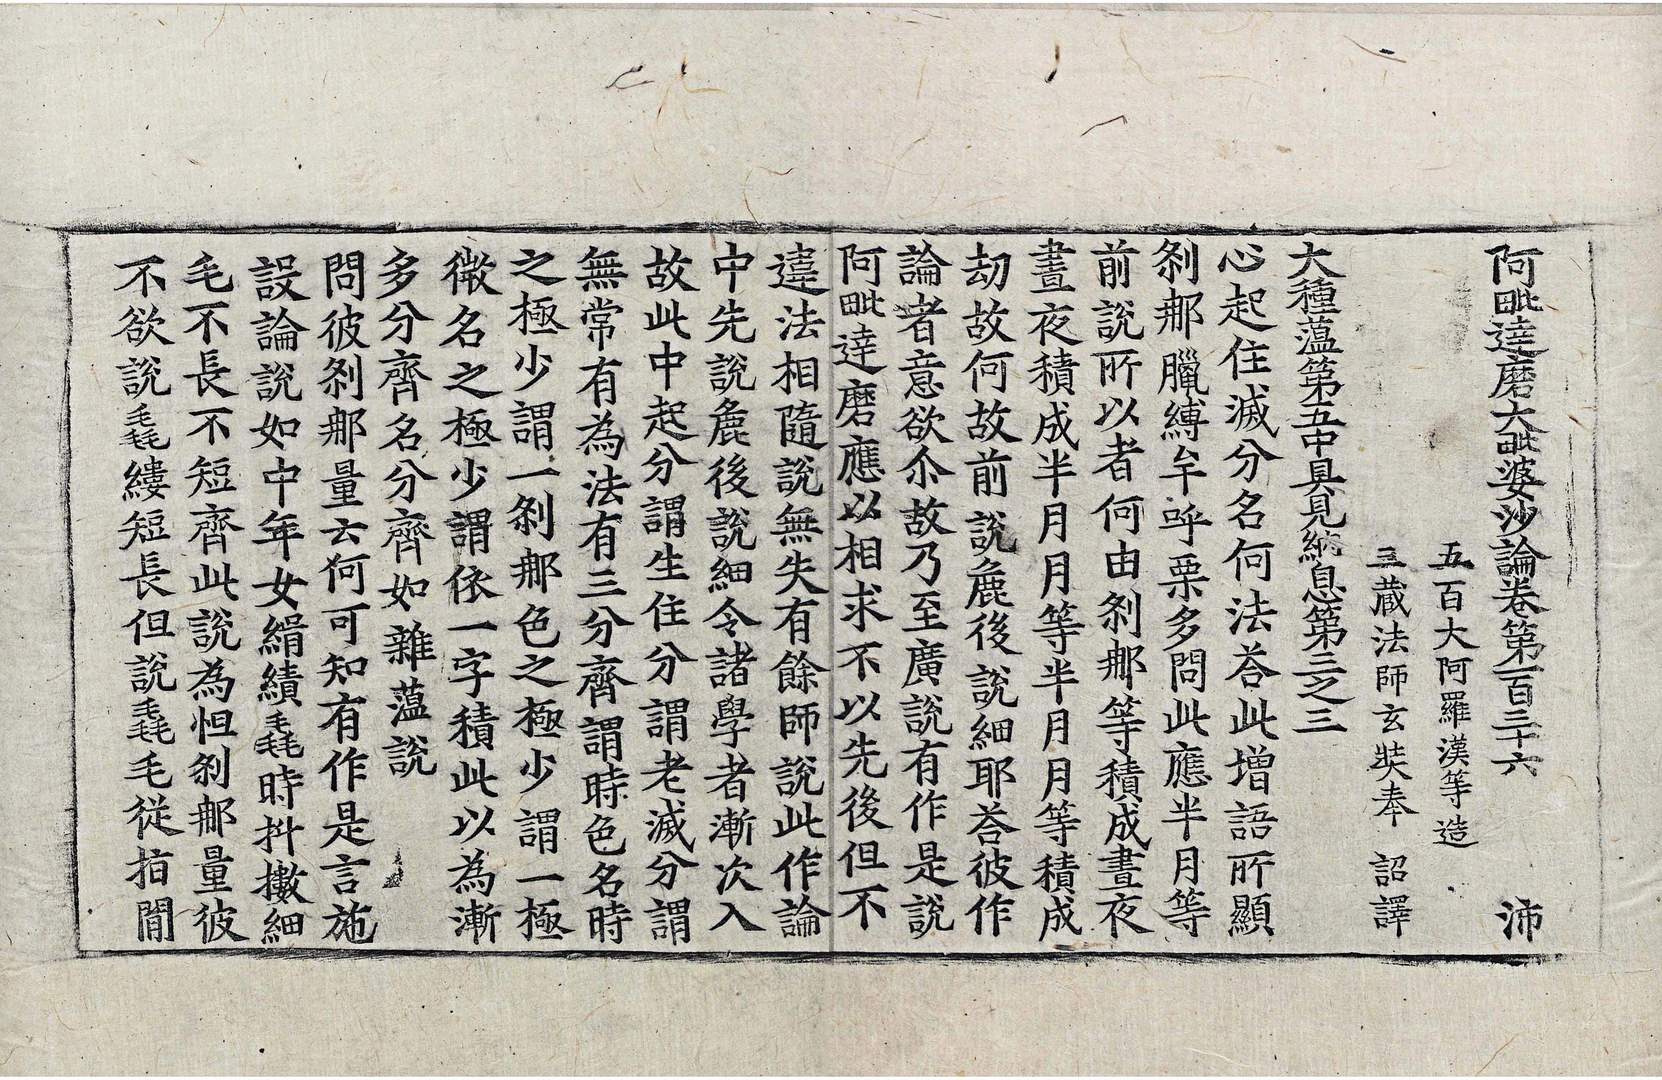 阿毗達磨大毗婆沙論卷第一百三十六　沛
五百大阿羅漢等造
三藏法師玄奘奉　詔譯
大種蘊第五中具見納息第三之三
心起住滅分名何法荅此增語所顯
剎那臘縛牟呼栗多問此應半月等
前說所以者何由剎那等積成晝夜
晝夜積成半月月等半月月等積成
劫故何故前說麁後說細耶荅彼作
論者意欲尒故乃至廣說有作是說
阿毗達磨應以相求不以先後但不
違法相隨說無失有餘師說此作論
中先說麁後說細令諸學者漸次入
故此中起分謂生住分謂老滅分謂
無常有為法有三分齊謂時色名時
之極少謂一剎那色之極少謂一極
微名之極少謂依一字積此以為漸
多分齊名分齊如雜蘊說
問彼剎那量云何可知有作是言施
設論說如中年女緝績毳時抖擻細
毛不長不短齊此說為怛剎那量彼
不欲說毳縷短長但說毳毛從指閒